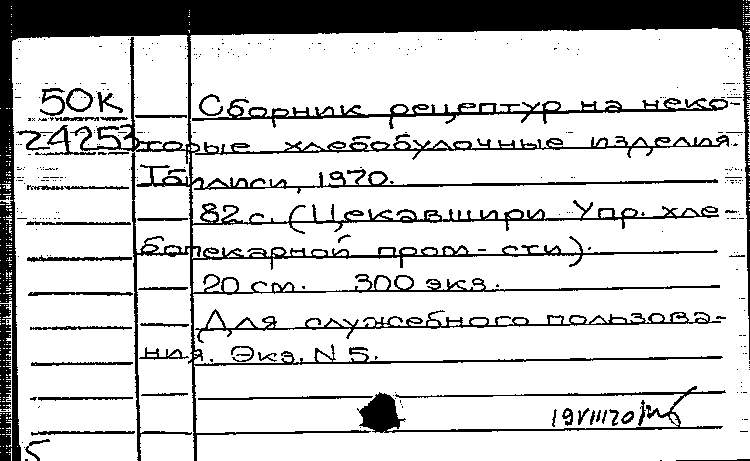 50К Сборник рецептур на неко-
24253 торые хлебобулочные изделия.
Тбилиси, 1970.
82 с. (Цекавшири Упр. хле-
бопекарной пром-сти).
20 см. 300 экз.
Для служебного пользова-
ния. Экз. N 5.
19VIII70
5